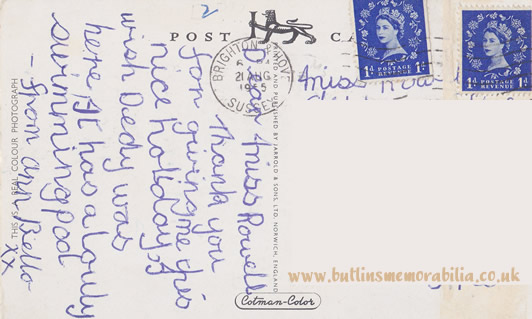 POST CA
BRIGHTON & HOVE
21 AUG
1955
SUSSEX
1D POSTAGE REVENUE 1D
1D POSTAGE REVENUE 1D
Miss
Dear Miss Rowell
Thank you
for giving me this
nice holiday, I
wish Dedy was
here. It has a lovely
swimming pool
- from Ann
xx
THIS IS A REAL COLOUR PHOTOGRAPH
PRINTED AND PUBLISHED BY JARROLD & SONS, LTD. NORWICH, ENGLAND
Cotman-Color
www.butlinsmemorabilia.co.uk